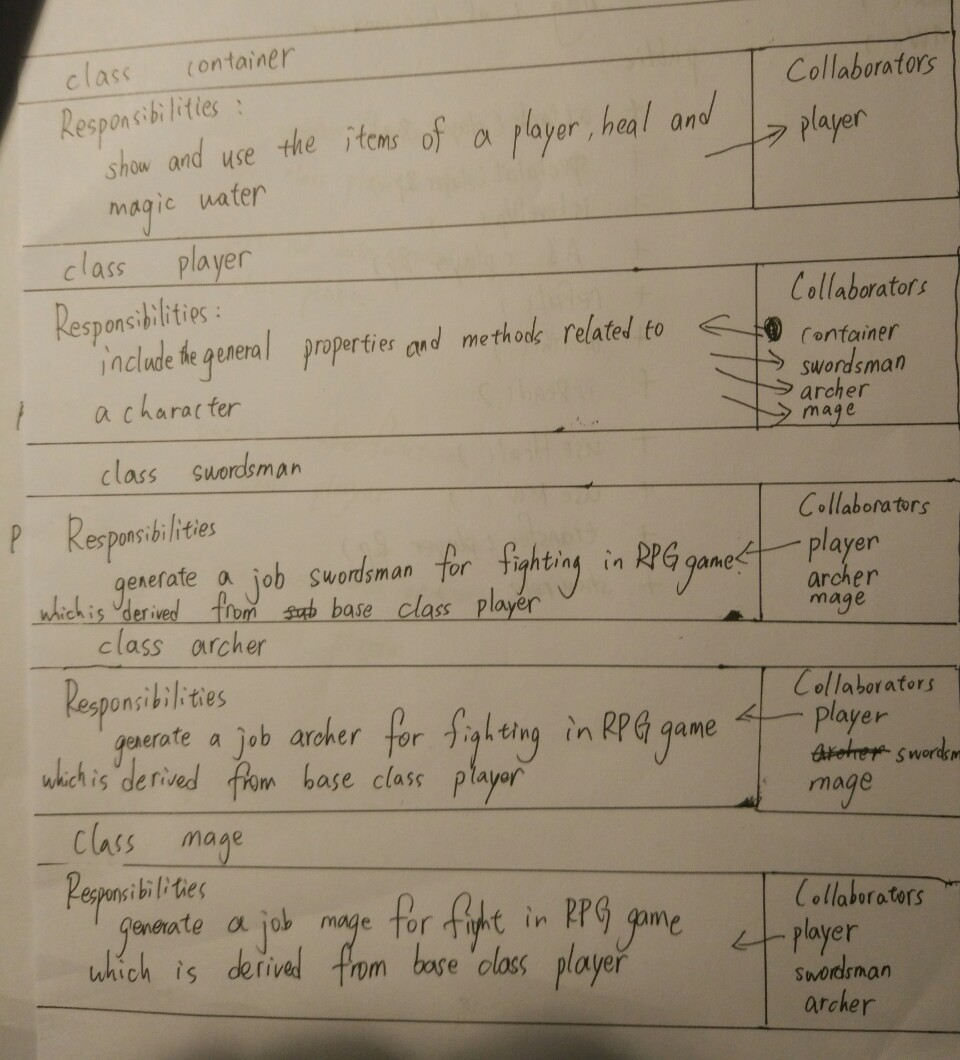 class container
Collaborators
Responsibilities :
show and use the items of a player, heal and
magic water
player
class player
Collaborators
Responsibilities :
include the general properties and methods related to
a character
container
swordsman
archer
mage
class swordsman
Collaborators
Responsibilities
generate a job swordsman for fighting in RPG game.
which is derived from sub base class player
player
archer
mage
class archer
Collaborators
Responsibilities
generate a job archer for fighting in RPG game
which is derived from base class player
player
archer swordsm
mage
Class mage
Collaborators
Responsibilities
generate a job mage for fight in RPG game
which is derived from base class player
player
swordsman
archer